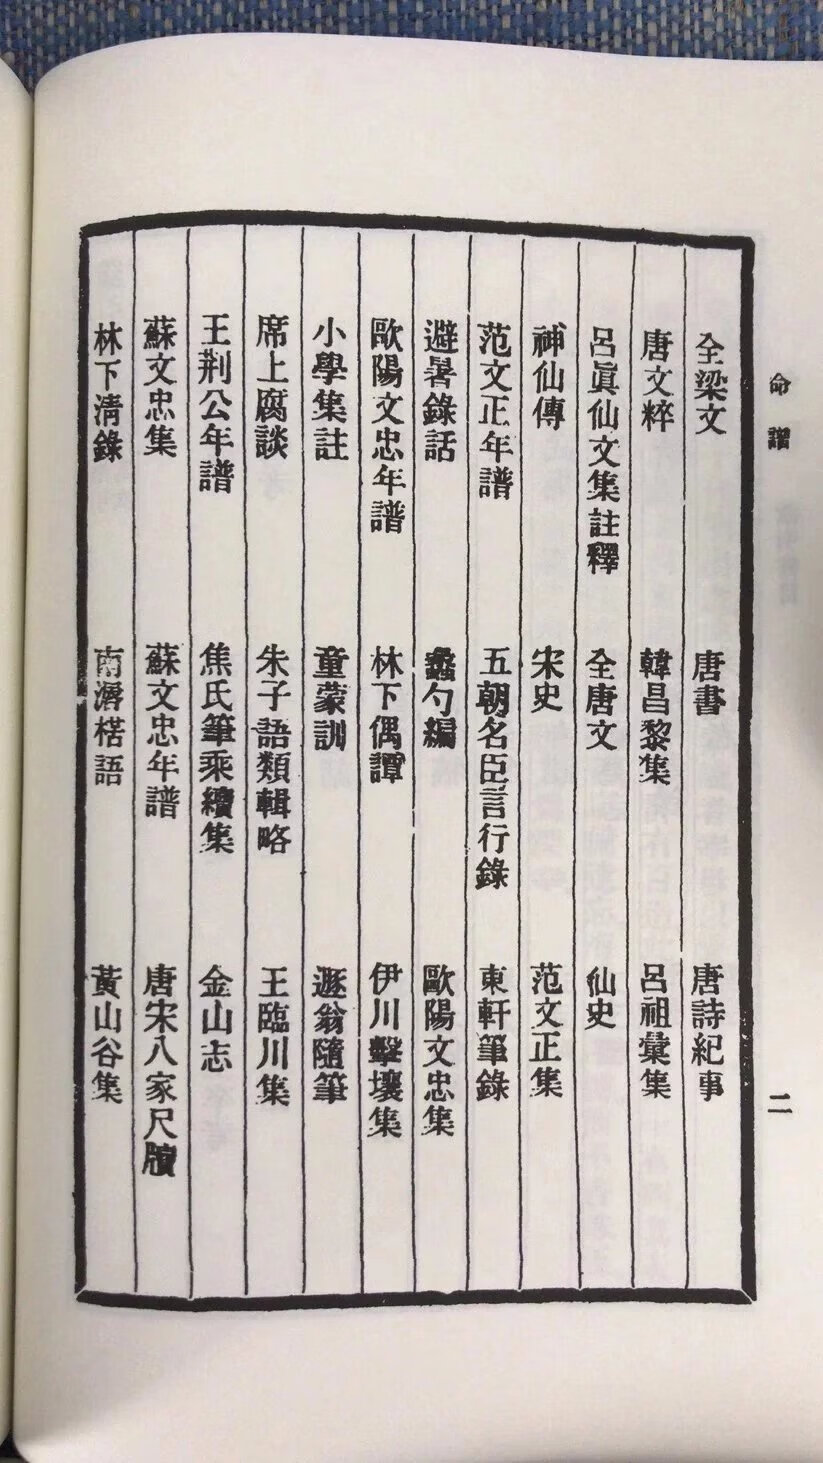 命譜
二
全梁文 唐書 唐詩紀事
唐文粹 韓昌黎集 呂祖彙集
呂眞仙文集註釋 全唐文 仙史
神仙傳 宋史 范文正集
范文正年譜 五朝名臣言行錄 東軒筆錄
避暑錄話 蠡勺編 歐陽文忠集
歐陽文忠年譜 林下偶譚 伊川擊壤集
小學集註 童蒙訓 遯翁隨筆
席上腐談 朱子語類輯略 王臨川集
王荆公年譜 焦氏筆乘續集 金山志
蘇文忠集 蘇文忠年譜 唐宋八家尺牘
林下清錄 南漘楛語 黃山谷集